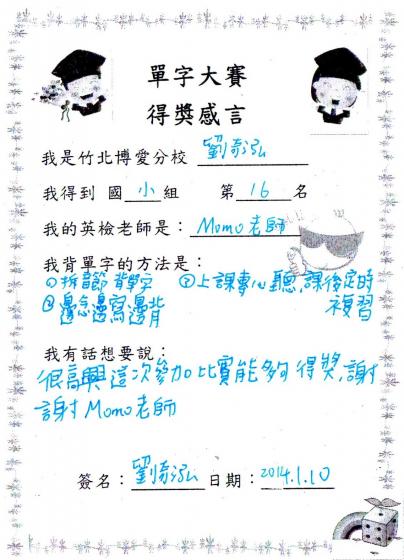 單字大賽
得獎感言
我是竹北博愛分校 劉奇泓
我得到 國小組 第16名
我的英檢老師是：Momo老師
我背單字的方法是：
①拆音節背單字 ②上課專心聽,課後定時複習
③邊念邊寫邊背
我有話想要說：
很高興這次參加比賽能夠得獎,謝
謝Momo老師
簽名：劉奇泓 日期：2014.1.10